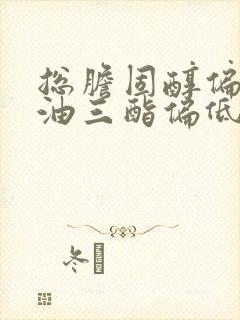 总胆固醇偏
油三酯偏低
冬